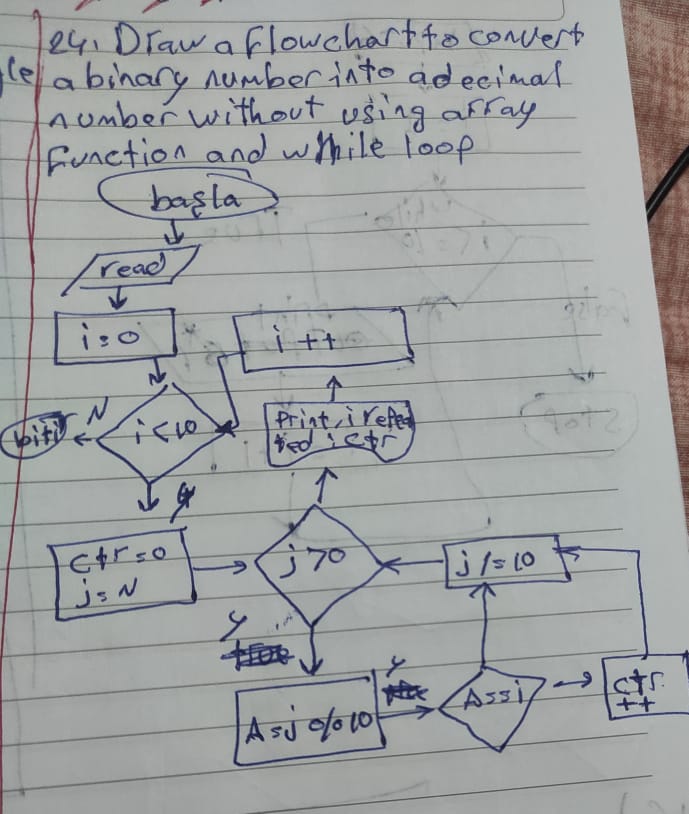 24. Draw a flowchart to convert
a binary number into a decimal
number without using array
function and while loop
başla
read
i=0
i++
N
biti
i<10
Print, i repea
ted i ctr
y
ctr=0
j=N
j>0
j/=10
y
y
A=j%10
A==i
ctr
++